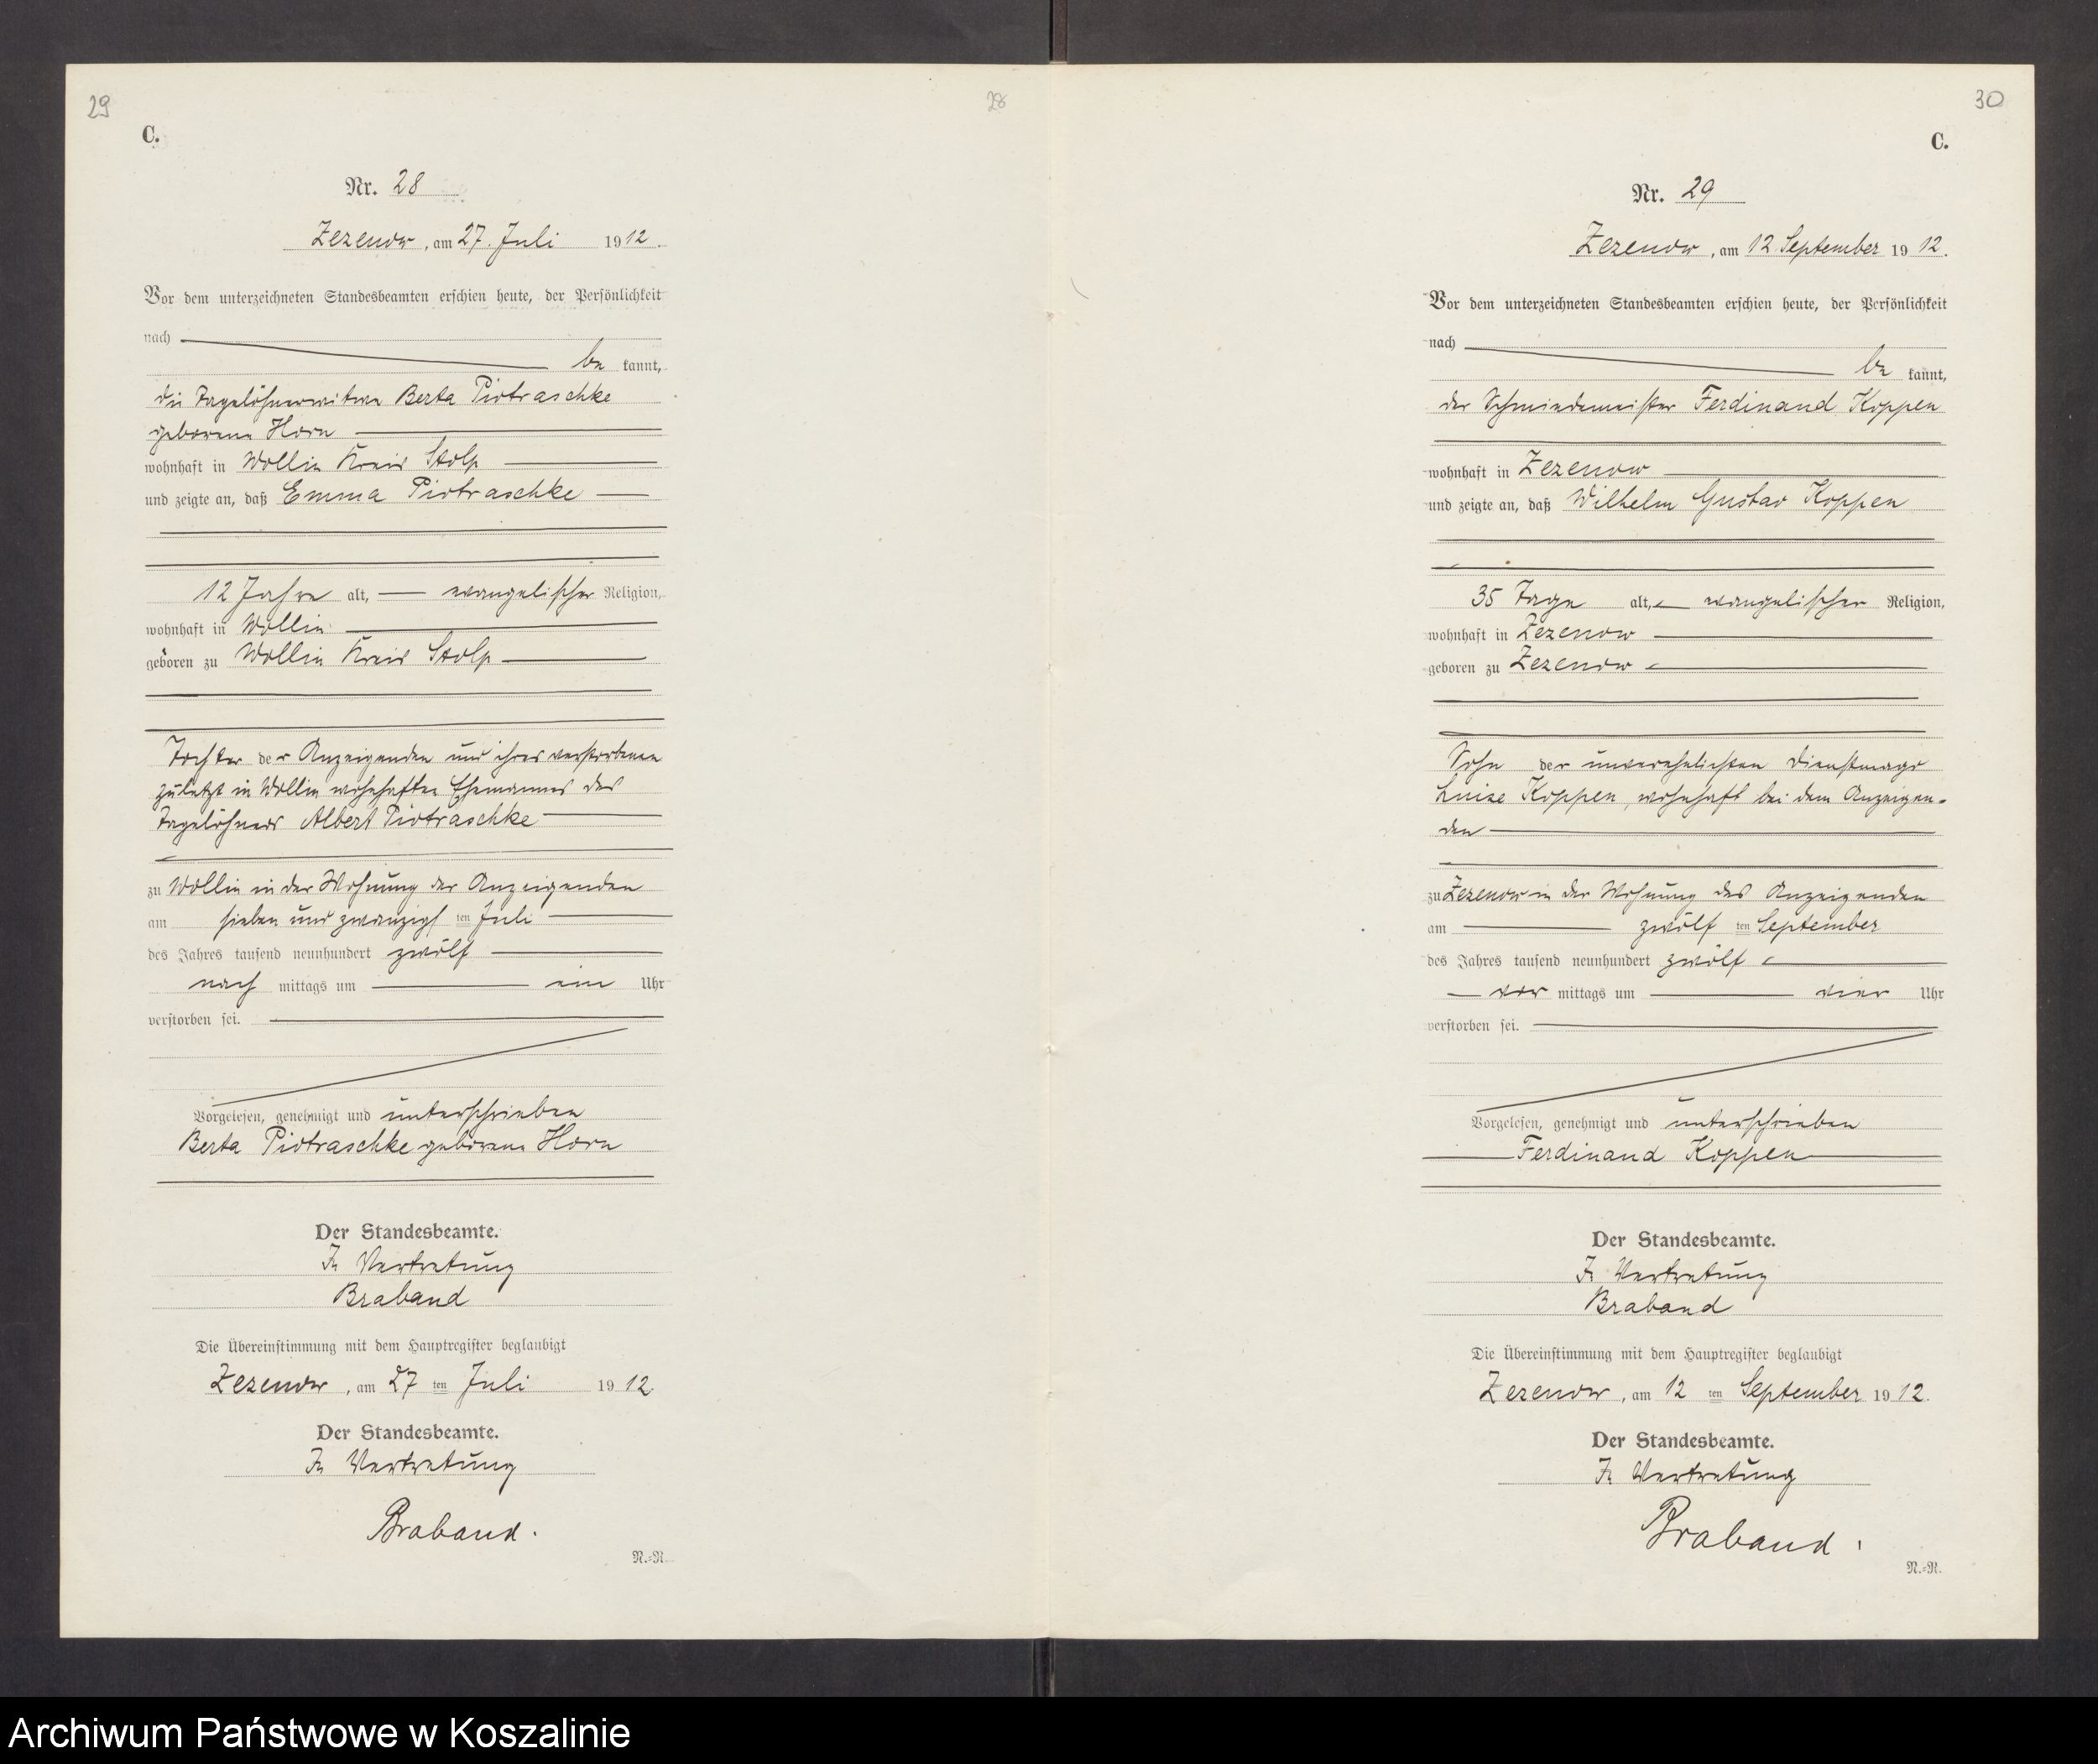 29
C.
Nr. 28
Zezenow, am 27. Juli 1912.
Vor dem unterzeichneten Standesbeamten erschien heute, der Persönlichkeit
nach
be kannt,
die Tagelöhnerwitwe Berta Piotraschke
geborene Horn
wohnhaft in Wollin Kreis Stolp
und zeigte an, daß Emma Piotraschke
12 Jahre alt, evangelischer Religion,
wohnhaft in Wollin
geboren zu Wollin Kreis Stolp
Tochter der Anzeigenden und ihres verstorbenen
zuletzt in Wollin wohnhaften Ehemannes des
Tagelöhners Albert Piotraschke
zu Wollin in der Wohnung der Anzeigenden
am sieben und zwanzigsten Juli
des Jahres tausend neunhundert zwölf
nach mittags um ein Uhr
verstorben sei.
Vorgelesen, genehmigt und unterschrieben
Berta Piotraschke geborene Horn
Der Standesbeamte.
In Vertretung
Braband
Die Übereinstimmung mit dem Hauptregister beglaubigt
Zezenow, am 27 ten Juli 1912.
Der Standesbeamte.
In Vertretung
Braband.
N.=R.
28
30
C.
Nr. 29
Zezenow, am 12 September 1912.
Vor dem unterzeichneten Standesbeamten erschien heute, der Persönlichkeit
nach
be kannt,
der Schmiedemeister Ferdinand Koppen
wohnhaft in Zezenow
und zeigte an, daß Wilhelm Gustav Koppen
35 Tage alt, evangelischer Religion,
wohnhaft in Zezenow
geboren zu Zezenow
Sohn der unverehelichten Dienstmagd
Luise Koppen, wohnhaft bei dem Anzeigen-
den
zu Zezenow in der Wohnung des Anzeigenden
am zwölf ten September
des Jahres tausend neunhundert zwölf
vor mittags um vier Uhr
verstorben sei.
Vorgelesen, genehmigt und unterschrieben
Ferdinand Koppen
Der Standesbeamte.
In Vertretung
Braband
Die Übereinstimmung mit dem Hauptregister beglaubigt
Zezenow, am 12 ten September 1912.
Der Standesbeamte.
In Vertretung
Braband.
N.=R.
Archiwum Państwowe w Koszalinie